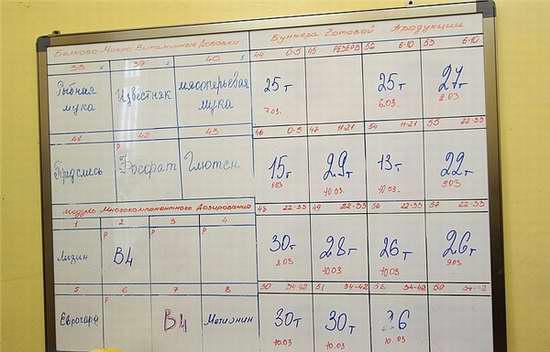 Белково Микро Витаминные Добавки
Бункера Готовой Продукции
39 40
Рыбная мука Известняк мясоперьевая мука
42 43
Р
Фосфат Глютен
44 0-5 45 РЕЗЕРВ 6-10 6-10
25т 25т 27т
7.03 6.03 8.03
46 0-5 47 11-21 54 11-21 55 22-33
15т 29т 13т 22т
10.03 10.03 9.03
Модуль Многокомпонентного Дозирования
1 2 3 4
Р Р
Лизин B4
5 6 7 8
Р
Еврогард B4 Метионин
48 22-33 49 22-33 22-33
30т 28т 26т 26т
10.03 10.03 9.03
50 34-42 51 34-42 34-42 34-42
30т 30т 26
10.03 10.03 10.03